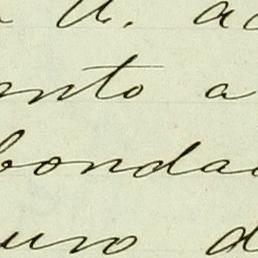 a U. ac
nto a
bondad
uro d